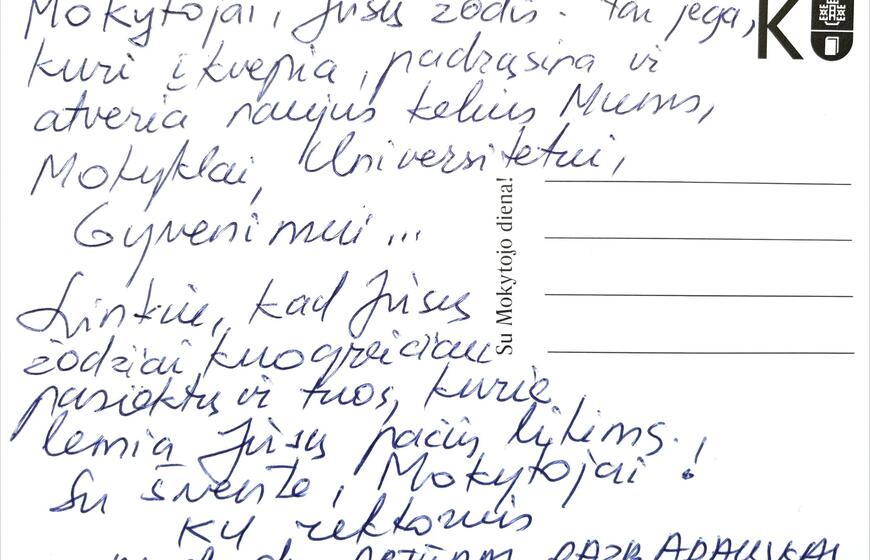 Mokytojai, Jūsų žodis - tai jėga,
kuri įkvepia, padrąsina ir
atveria naujus kelius Mums,
Mokyklai, Universitetui,
Gyvenimui...
Linkiu, kad Jūsų
žodžiai kuogreičiau
pasiektų ir tuos, kurie
lemia Jūsų pačių likimą.
Su švente, Mokytojai!
KU rektorius
ARTŪRAS RAZBADAUSKAS
KU
Su Mokytojo diena!